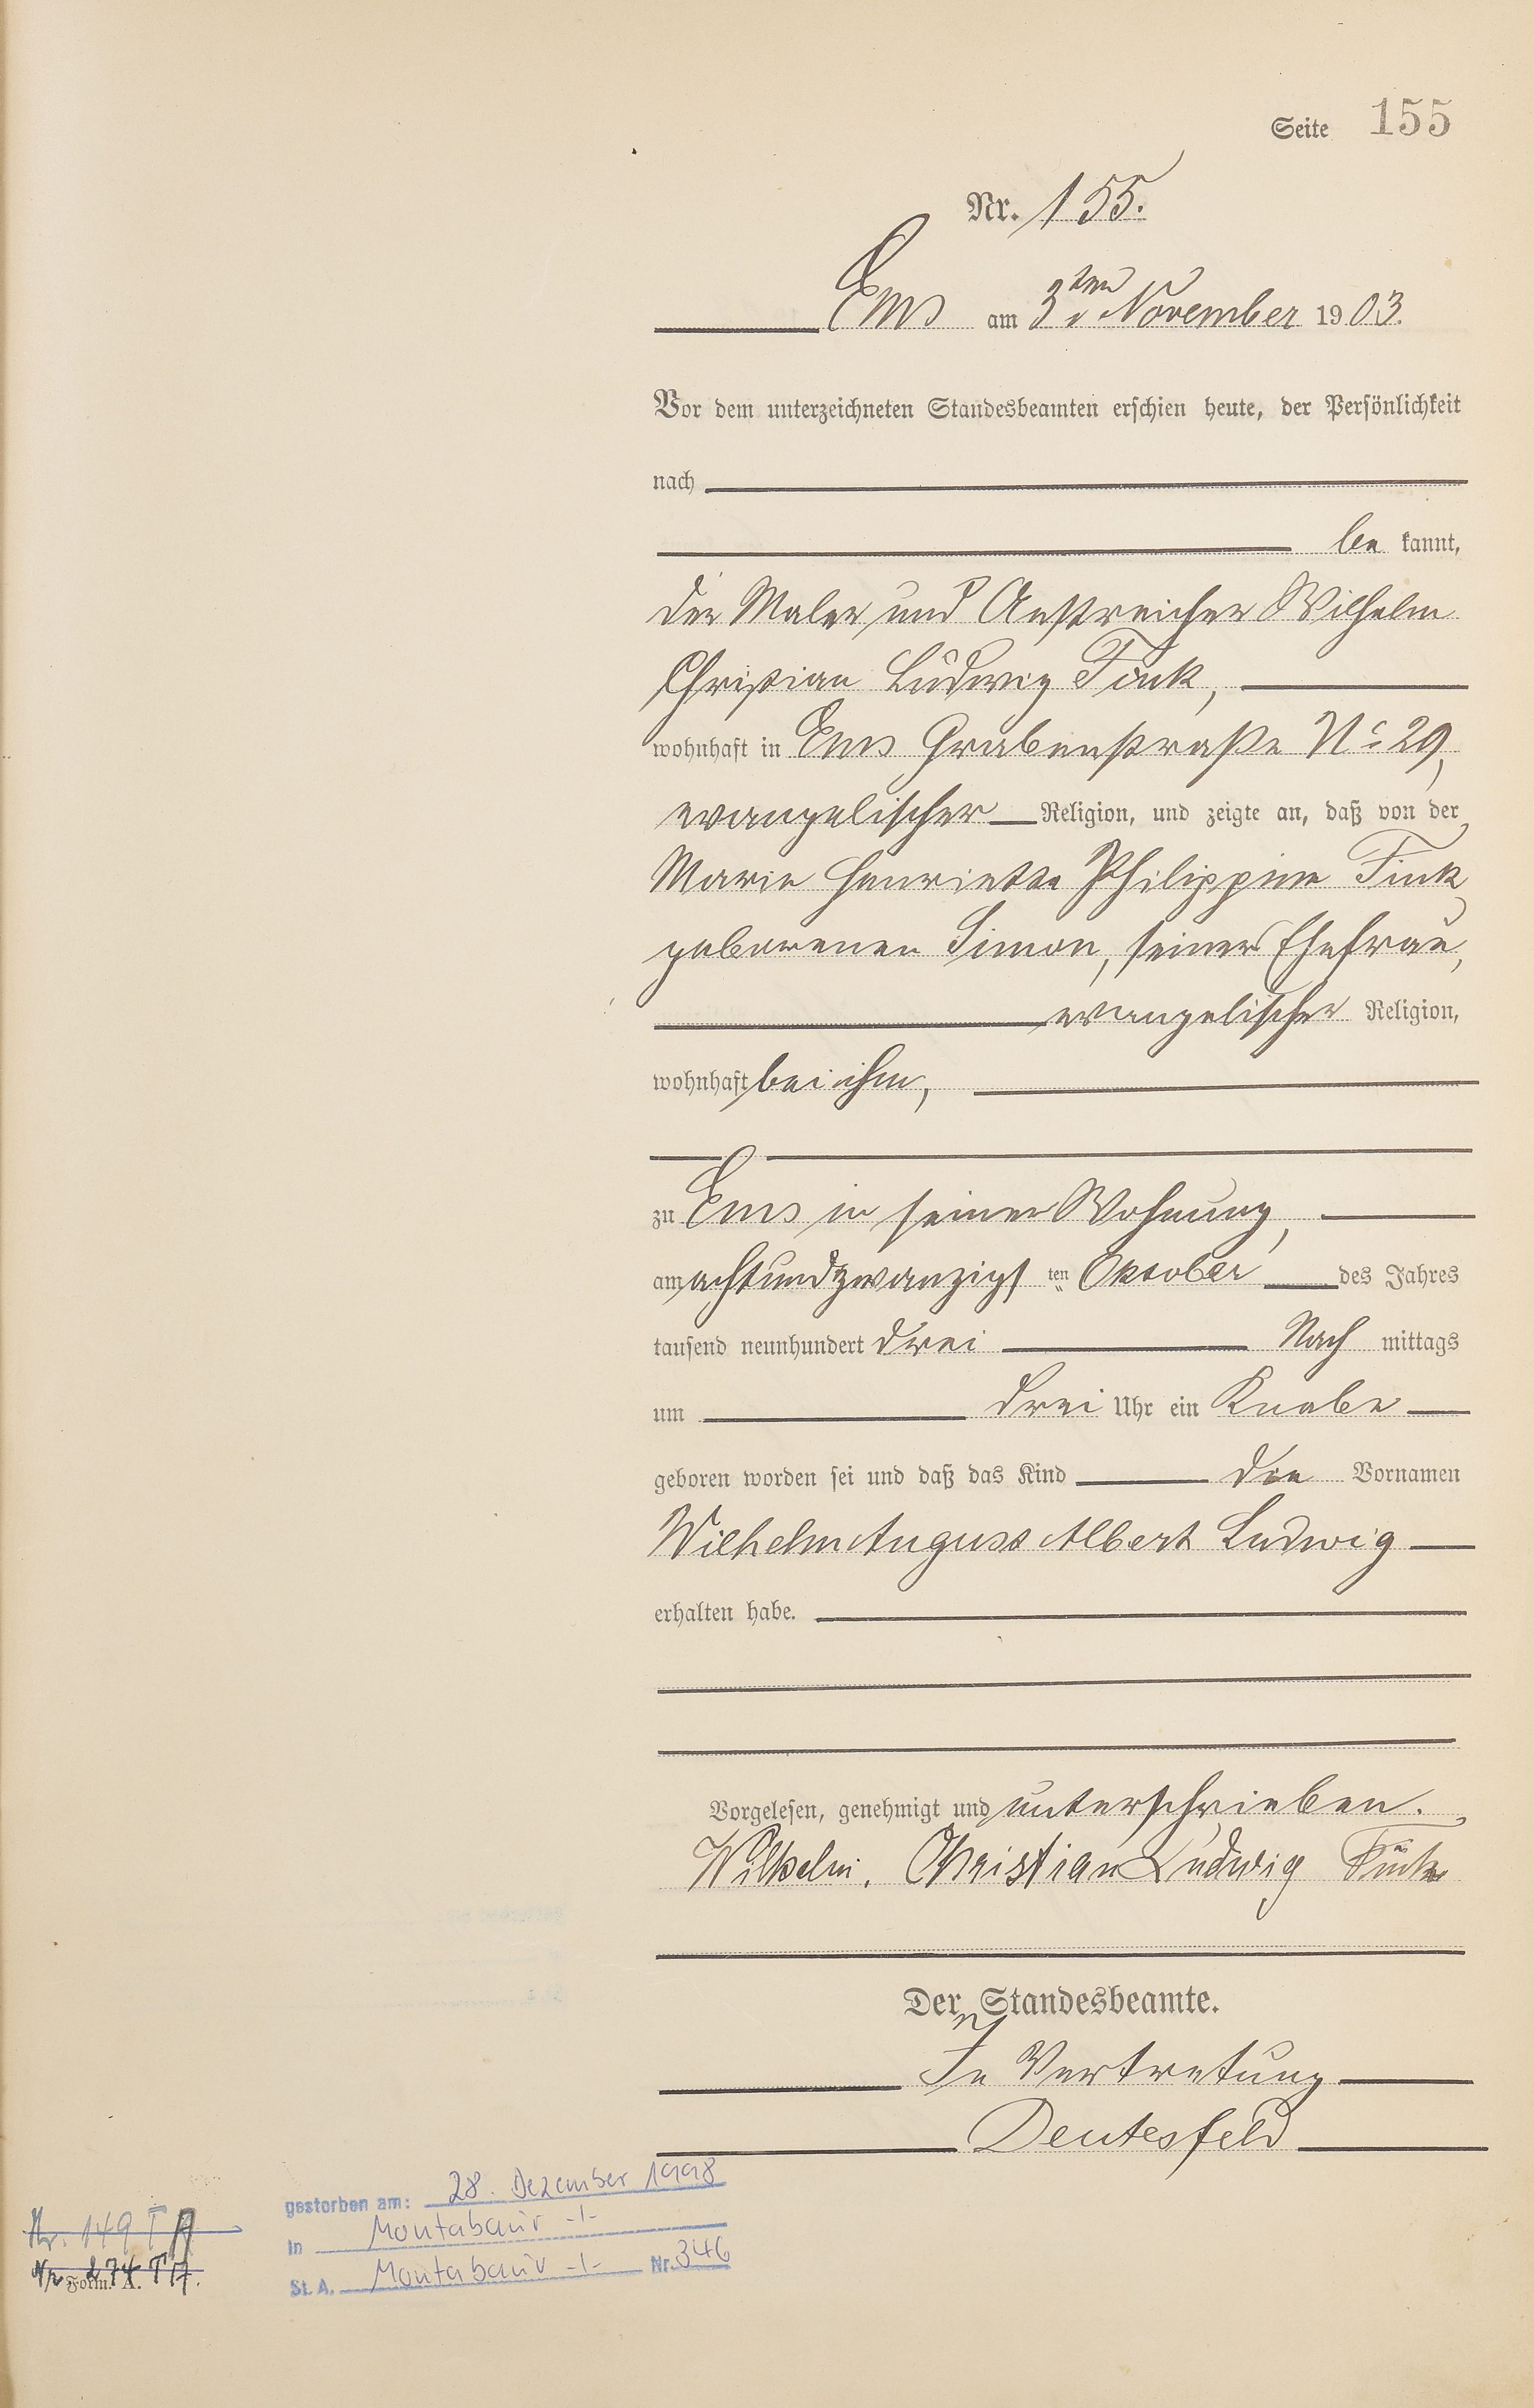 Seite 155
Nr. 155.
Ems am 3ten November 1903.
Vor dem unterzeichneten Standesbeamten erschien heute, der Persönlichkeit
nach
be kannt,
der Maler und Anstreicher Wilhelm
Christian Ludwig Fink,
wohnhaft in Ems Grabenstraße No 29,
evangelischer Religion, und zeigte an, daß von der
Marie Henriette Philippine Fink
geborenen Simon, seiner Ehefrau,
evangelischer Religion,
wohnhaft bei ihm,
zu Ems in seiner Wohnung,
am achtundzwanzigsten Oktober des Jahres
tausend neunhundert drei Nach mittags
um drei Uhr ein Knabe
geboren worden sei und daß das Kind die Vornamen
Wilhelm August Albert Ludwig
erhalten habe.
Vorgelesen, genehmigt und unterschrieben.
Wilhelm. Christian Ludwig Fink
Der Standesbeamte.
In Vertretung
Deutesfeld
gestorben am: 28. Dezember 1998
in Montabaur -1-
St. A. Montabaur -1- Nr. 346
Nr. 149 T A
Nr. 274 T A.
Form. A.